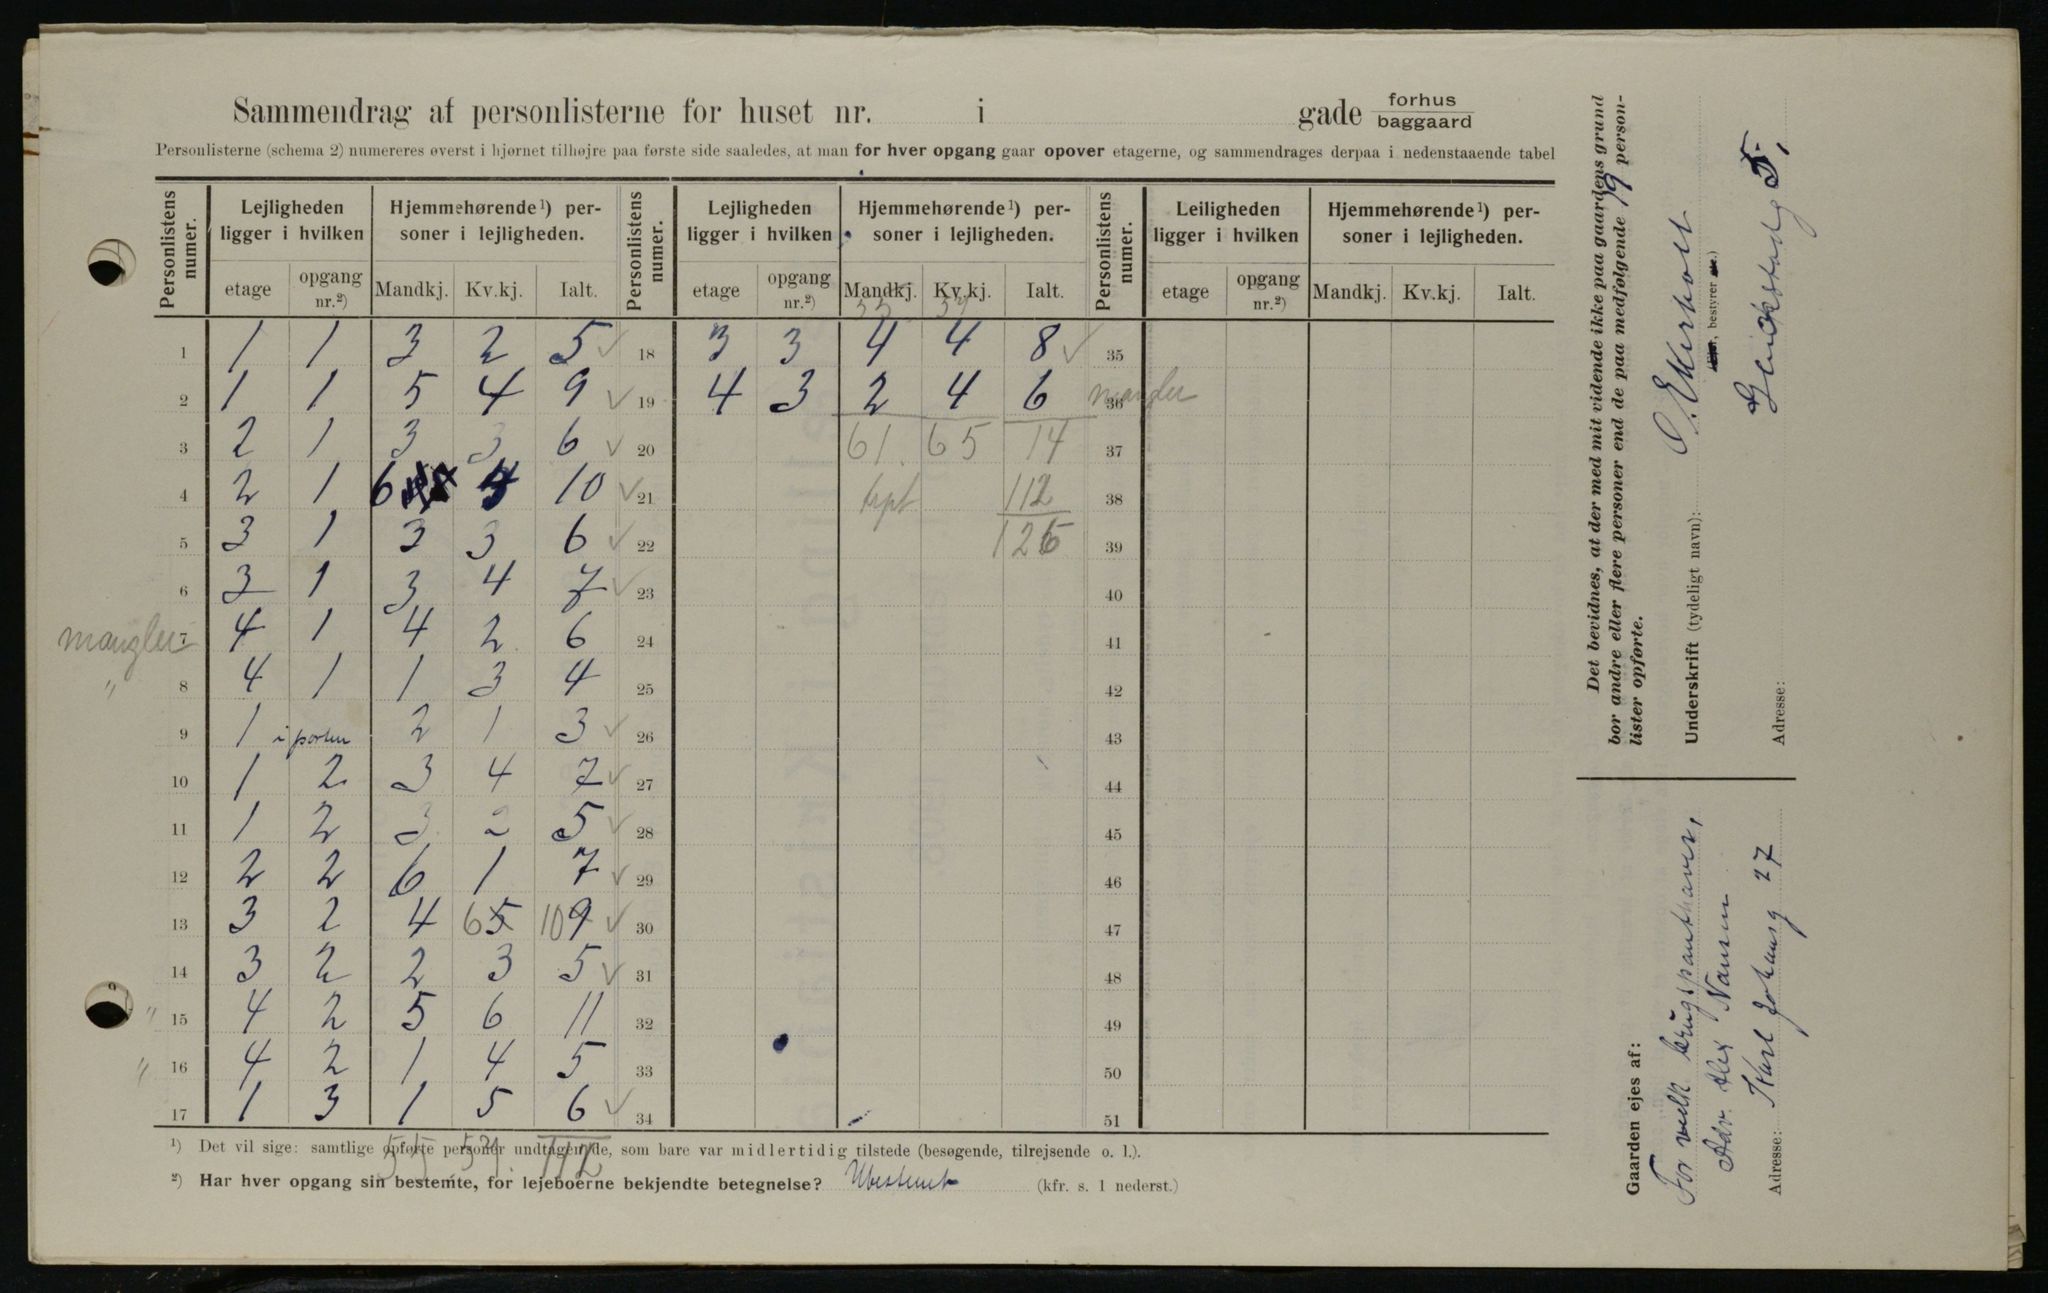 Sammendrag af personlisterne for huset nr. i gade forhus baggaard
Personlisterne (schema 2) numereres øverst i hjørnet tilhøjre paa første side saaledes, at man for hver opgang gaar opover etagerne, og sammendrages derpaa i nedenstaaende tabel
Personlistens numer. Lejligheden ligger i hvilken Hjemmehørende¹) personer i lejligheden. Personlistens numer. Lejligheden ligger i hvilken Hjemmehørende¹) personer i lejligheden. Personlistens numer. Leiligheden ligger i hvilken Hjemmehørende¹) personer i lejligheden.
etage opgang nr.²) Mandkj. Kv.kj. Ialt. etage opgang nr.²) Mandkj. Kv.kj. Ialt. etage opgang nr.²) Mandkj. Kv.kj. Ialt.
1 1 1 3 2 5 18 3 3 4 4 8 35
2 1 1 5 4 9 19 4 3 2 4 6 mangler 36
3 2 1 3 3 6 20 61 65 14 37
4 2 1 6 4 10 21 trpt 112 38
5 3 1 3 3 6 22 126 39
6 3 1 3 4 7 23 40
mangler 7 4 1 4 2 6 24 41
" 8 4 1 1 3 4 25 42
9 1 i porten 2 1 3 26 43
10 1 2 3 4 7 27 44
11 1 2 3 2 5 28 45
12 2 2 6 1 7 29 46
13 3 2 4 6 5 10 9 30 47
14 3 2 2 3 5 31 48
" 15 4 2 5 6 11 32 49
" 16 4 2 1 4 5 33 50
17 1 3 1 5 6 34 51
55 57 112
¹) Det vil sige: samtlige opførte personer undtagen de, som bare var midlertidig tilstede (besøgende, tilrejsende o. l.).
²) Har hver opgang sin bestemte, for lejeboerne bekjendte betegnelse? Ubestemt (kfr. s. 1 nederst.)
Det bevidnes, at der med mit vidende ikke paa gaardens grund
bor andre eller flere personer end de paa medfølgende 19 person-
lister opførte.
Underskrift (tydeligt navn):
Ejer, bestyrer etc.)
Adresse: 5,
Gaarden ejes af:
For velk brugspanthaver,
Adv. Alex Nansen
Adresse: Karl Johansg 27